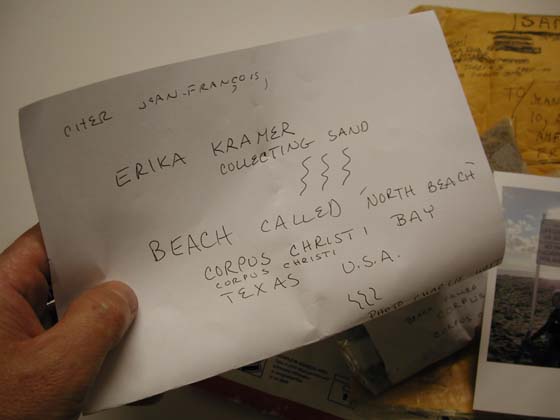 CHER JEAN-FRANÇOIS,
ERIKA KRAMER
COLLECTING SAND
BEACH CALLED 'NORTH BEACH'
CORPUS CHRISTI BAY
CORPUS CHRISTI
TEXAS U.S.A.
TO